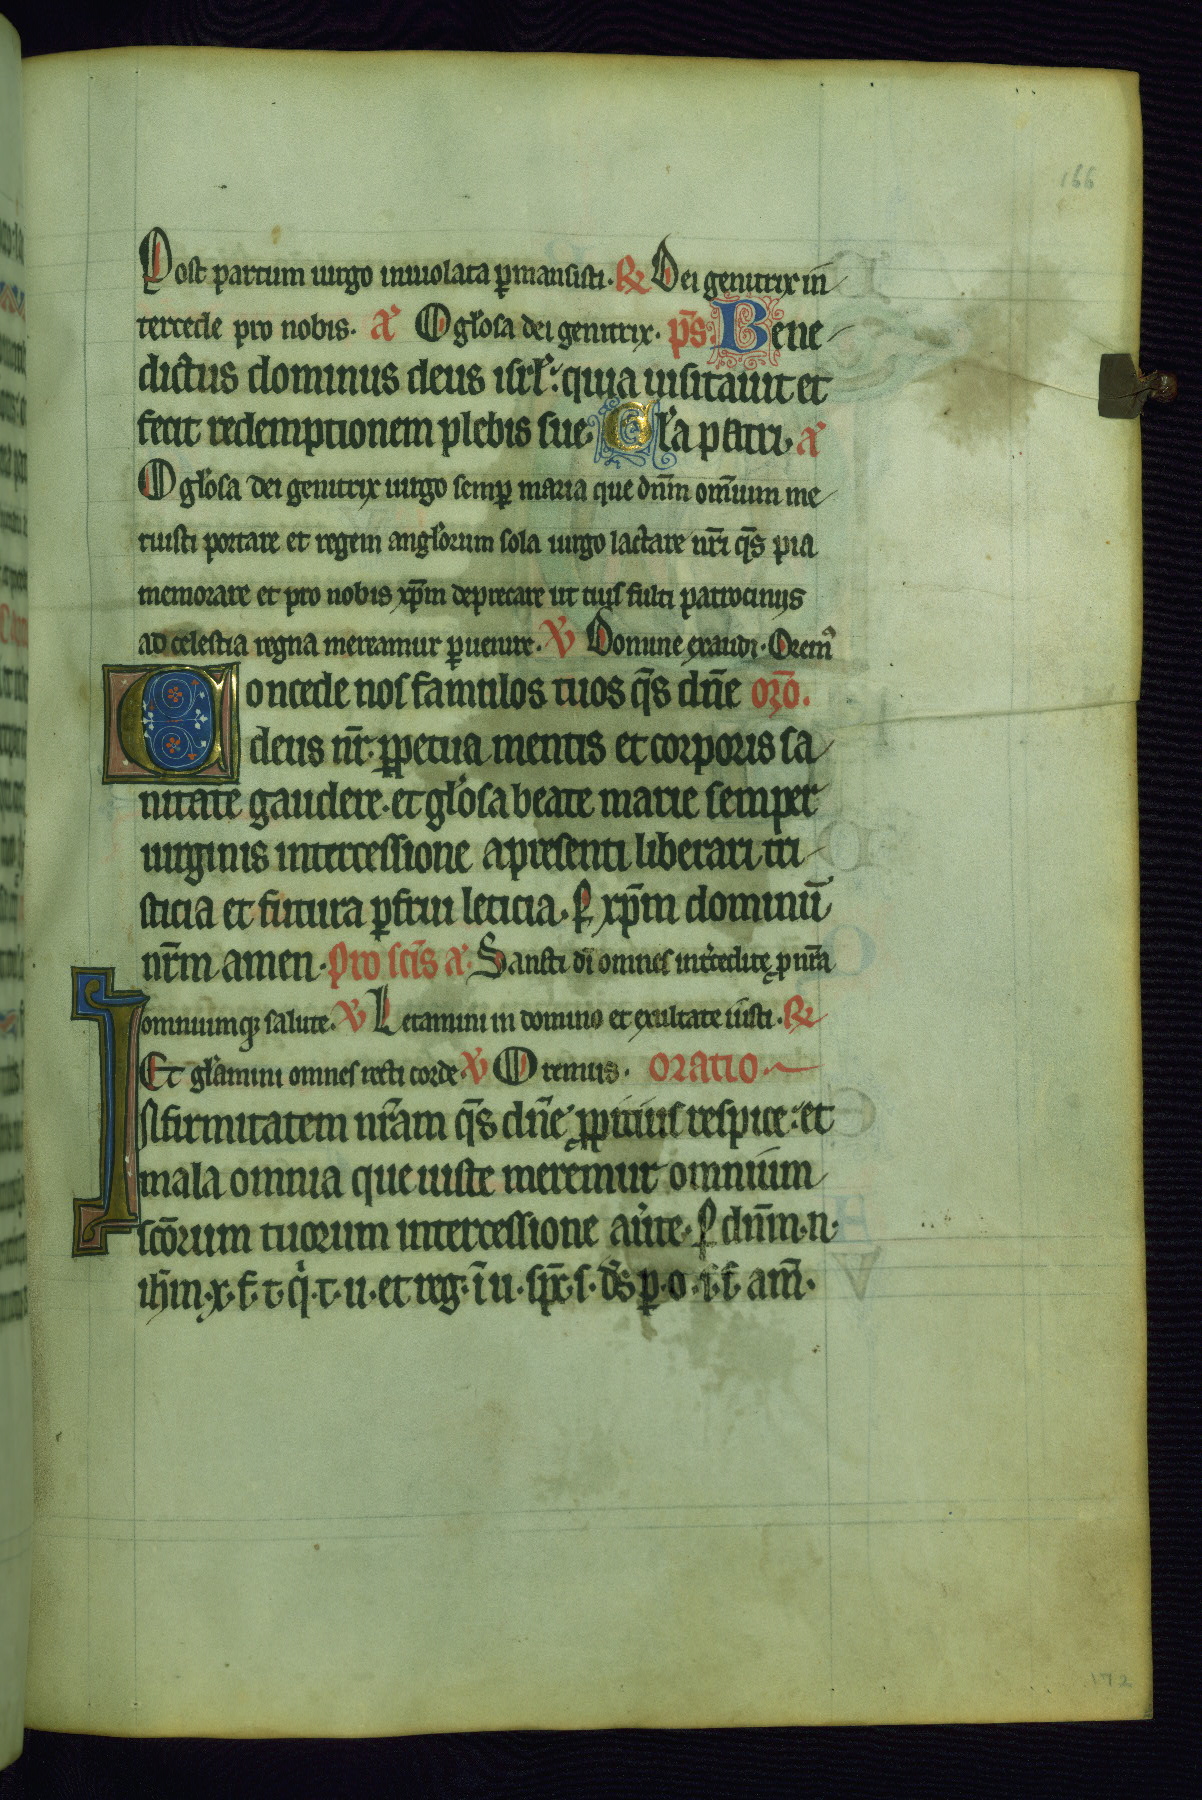 166
Post partum uirgo inuiolata ꝑmansisti. ℟ Dei genitrix in
tercede pro nobis. a᷒ O gło̾sa dei genitrix. p̄s. Bene
dictus dominus deus isrł. quia uisitauit et
fecit redemptionem plebis sue. Gła patri. a᷒
O głosa dei genitrix uirgo semꝑ maria que dn̄m om̄ium me
ruisti portare et regem angłorum sola uirgo lactare nr̄i q̄s pia
memorare et pro nobis xp̄m deprecare ut tuis fulti patrociniis
ad celestia regna mereamur ꝑuenire. ℣ Domine exaudi. Orem᷒
Concede nos famulos tuos q̄s dn̄e oꝛ̄o.
deus nr̄. ꝑpetua mentis et corporis sa
nitate gaudere. et głosa beate marie semper
uirginis intercessione a presenti liberari tri
sticia et futura ꝑfrui leticia. ꝑ xp̄m dominū
nr̄m amen. Pro scīs a᷒. Sancti dī omnes int̾cedite ꝓ nr̄a
omniumqꝫ salute. ℣ Letamini in domino et exultate iusti. ℟
Et głamini omnes recti corde. ℣ Oremus. oratio.
Infirmitatem nr̄am q̄s dn̄e ꝓpitius respice. et
mala omnia que iuste meremur omnium
scōrum tuorum intercessione au̾te. ꝑ dn̄m. n.
ih̄m. x. f. t. q̇. t. u. et reg. ī u. sp̄c. s. ds̄ ꝑ. o. s. s. am̄.
172